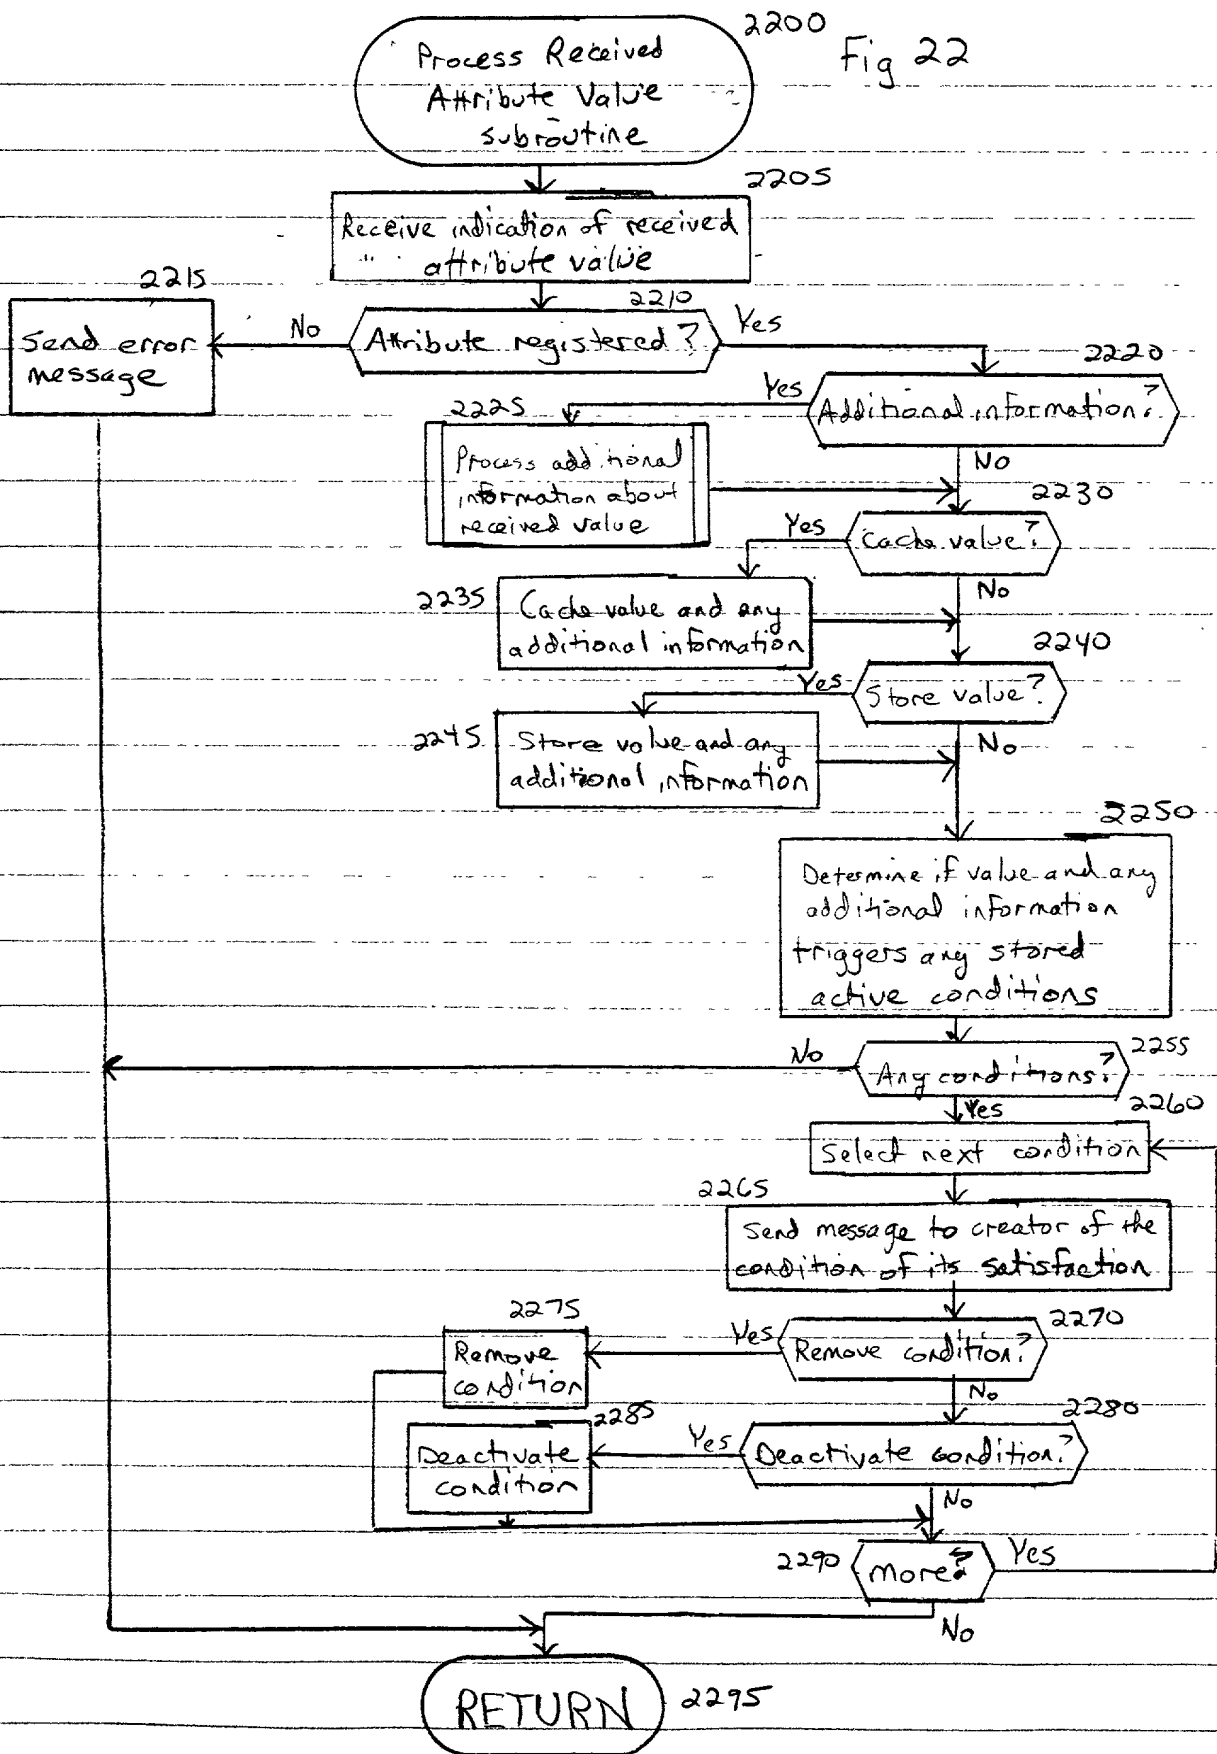 2200
Fig 22
Process Received
Attribute Value
subroutine
2205
Receive indication of received
attribute value
2215
2210
Send error
message
No
Attribute registered?
Yes
2220
Yes
Additional information?
2225
Process additional
information about
received value
No
2230
Yes
Cache value?
2235
Cache value and any
additional information
No
2240
Yes
Store value?
2245
Store value and any
additional information
No
2250
Determine if value and any
additional information
triggers any stored
active conditions
No
Any conditions?
2255
Yes
2260
Select next condition
2265
Send message to creator of the
condition of its satisfaction
2275
2270
Remove
condition
Yes
Remove condition?
No
2285
2280
Deactivate
condition
Yes
Deactivate condition?
No
2290
more?
Yes
No
RETURN
2295